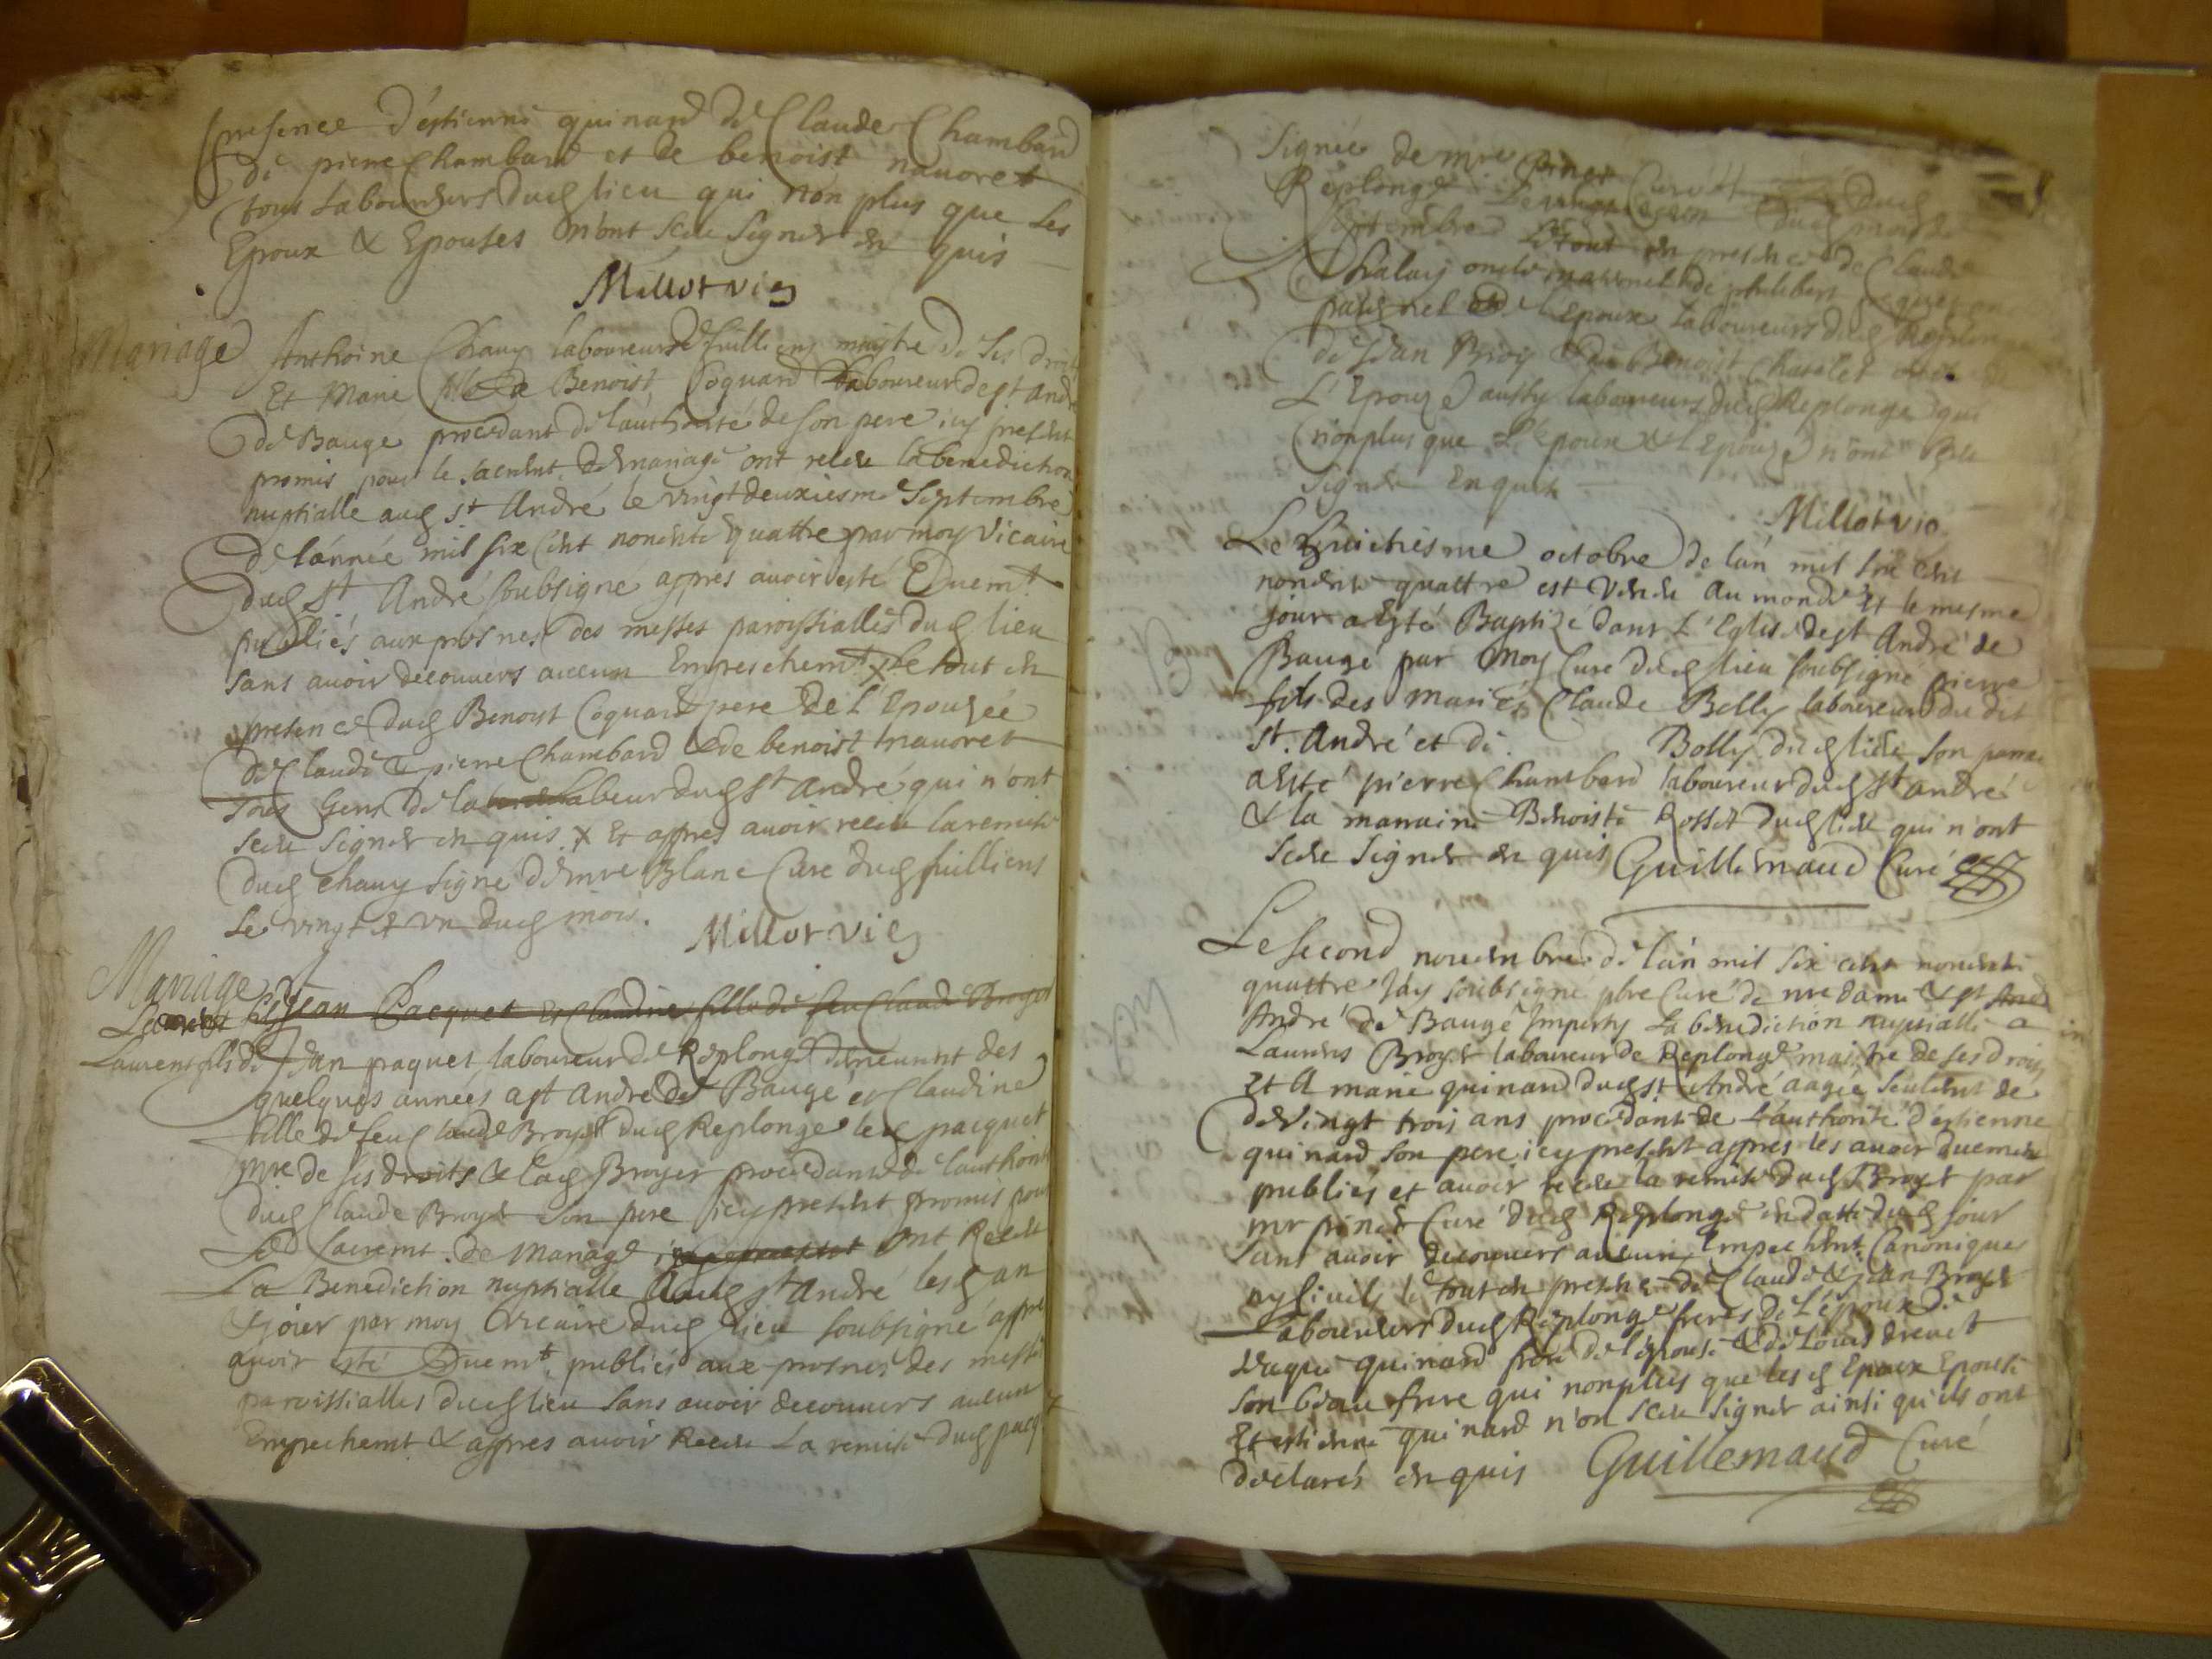 presence d'estienne quinard de Claude Chambard
de pierre Chambard et de benoist nauoret
tous Laboureurs dud lieu qui non plus que les
Epoux & Epouses n'ont sceu signer en quis
Millot vic
Mariage
Anthoine Chauy laboureur de fuilliens maistre de ses droits
Et Marie fille de Benoist Coquard Laboureur de st André
de Baugé procedant de l'authorité de son pere icy present
promis pour le sacremt de mariage ont receu la benediction
nuptialle aud st André le vingt deuxiesme Septembre
de l'année mil six cent nonente quattre par moy Vicaire
dud st André soubsigné appres auoir esté Duemt
publiés aux prosnes des messes paroissialles dud lieu
sans auoir decouuers aucun Empeschemt x le tout en
presence dud Benoist Coquard pere de l'Epousée
de Claude & pierre Chambard & de benoist nauoret
tous Gens de labeur dud st André qui n'ont
sceu signer en quis x Et appres auoir receu la remise
dud Chauy signé de mre Blanc Curé dud fuilliens
Le vingt & vn dud mois.
Millot vic
Mariage
Jean Pacquet et Claudine fille de feu Claude Broyer
Laurent fils de Jean paquet laboureur de Replonge demeurant des
quelques années a st André de Baugé et Claudine
fille de feu Claude Broyer dud Replonge led pacquet
mre de ses droits & lad Broyer procedante de l'authorité
dud Claude Broyer son pere icy present promis pour
Led sacremt de mariage ont Receu
La Benediction nuptialle aud st André lesd an
& jour par moy Vicaire dud lieu soubsigné appres
auoir esté Duemt publiés aux prosnes des messes
paroissialles dud lieu sans auoir decouuers aucun
Empechemt & appres auoir Receu La remise dud pacqt
Signée de mre pinet Curé dud
Replonge Le dud mois de
Septembre Le tout en presence de Claude
Chalay oncle maternel de philibert
paternel de l'Epoux Laboureurs dud Replonge
de Jean Broy & de Benoist Chatelet oncle de
L'Epouze aussy laboureurs dud Replonge qui
nonplus que L'Epoux & l'Epouze n'ont sceu
signer Enquis
Millot vic
Le huictiesme octobre de l'an mil six cent
nonente quattre est venu au monde Et le mesme
jour a Esté Baptizé dans L'Eglise de st André de
Baugé par Moy Curé dud lieu soubsigné pierre
fils des mariés Claude Bolly laboureur du dit
st. André et de Bolly dud lieu son parrain
a esté pierre Chambard laboureur dud st andré
& la marraine Benoiste Rosset dud lieu qui n'ont
sceu signer en quis Guillemaud Curé
Le second nouembre de l'an mil six cent nonente
quattre j'ay soubsigné pbre Curé de nre dame & st And
André de Baugé Imparty La benediction nuptialle a
Laurens Broyer laboureur de Replonge maistre de ses droits
Et A marie quinard dud st André aagée seulemt de
de vingt trois ans procedant de L'authorité d'estienne
quinard son pere icy present appres les auoir duement
publiés et auoir receu la remise dud Broyer par
mr pinet Curé dud Replonge en datte dud jour
sans auoir decouuers aucun Empechemt Canonique
ny Ciuils le tout en presence de Claude & Jean Broyer
Laboureurs dud Replonge freres de L'Epoux de
Vaque quinard frere de l'epouse & de Louis dreuet
son beau frere qui nonplus que les d Epoux Epouse
Et estienne quinard n'on sceu signer ainsi qu'ils ont
declarés en quis Guillemaud Curé